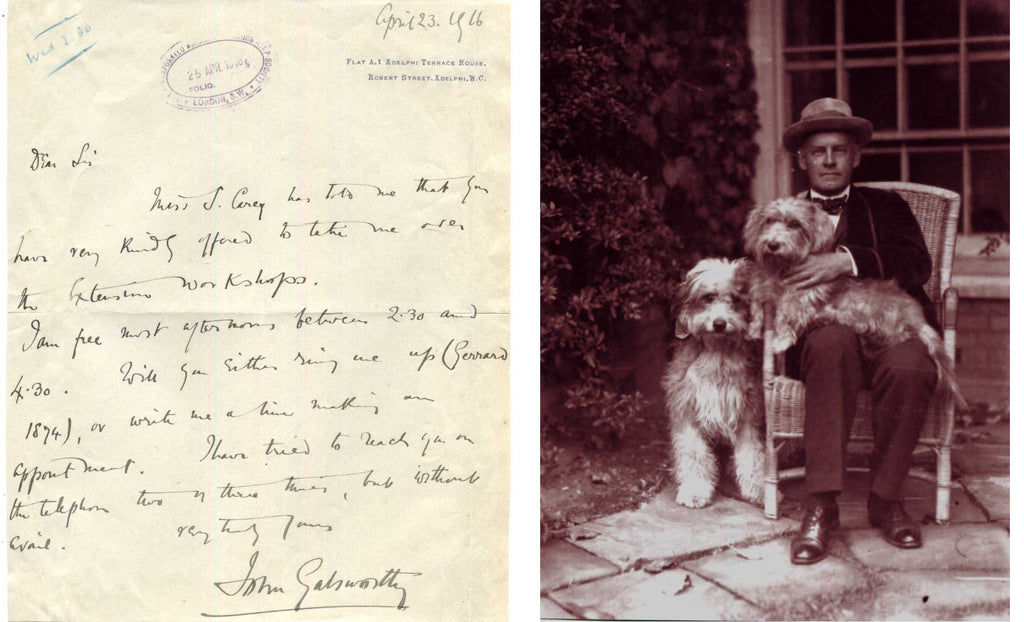 Wed 2.30
April 23. 1916
FLAT A,1 ADELPHI TERRACE HOUSE,
ROBERT STREET, ADELPHI, W.C.
25 APR 1916
FOLIO.
LONDON, S.W.
Dear Sir
Miss S. Carey has told me that you
have very kindly offered to take me over
the Extension Workshops.
I am free most afternoons between 2.30 and
4.30. Will you either ring me up (Gerrard
1874), or write me a line making an
appointment. I have tried to reach you on
the telephone two or three times, but without
avail. very truly yours
John Galsworthy